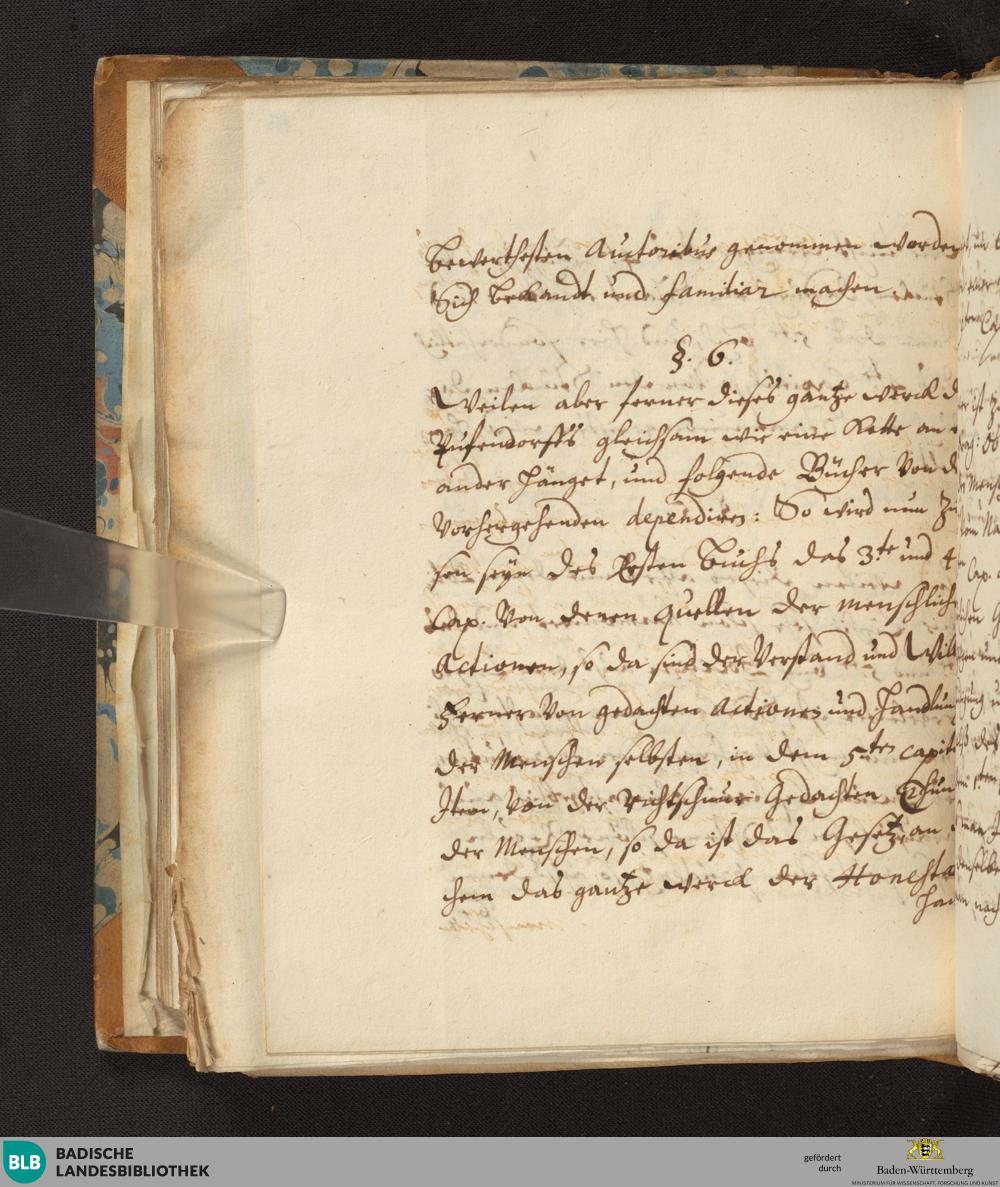 bewerthesten Autoribus genommen worden
Sich bekandt und familiar machen
§. 6.
Weilen aber ferner dieses gantze werck d
Pufendorffs gleichsam wie eine Kette an
ander hänget, und folgende Bücher Von d
Vorhergehenden dependiren: So wird nun Zu
sen seyn des Ersten Buchs das 3te und 4
Cap. Von denen quellen der menschlich
Actionen, so da sind der Verstand und Will
Ferner Von gedachten Actiones und Handlun
der Menschen selbsten, in dem 5ten capit
Item, Von der Richtschnur Gedachten Thun
der Menschen, so da ist das Gesetz, an
chem das gantze werck der Honesta
Han
BLB
BADISCHE
LANDESBIBLIOTHEK
gefördert
durch
Baden-Württemberg
MINISTERIUM FÜR WISSENSCHAFT, FORSCHUNG UND KUNST